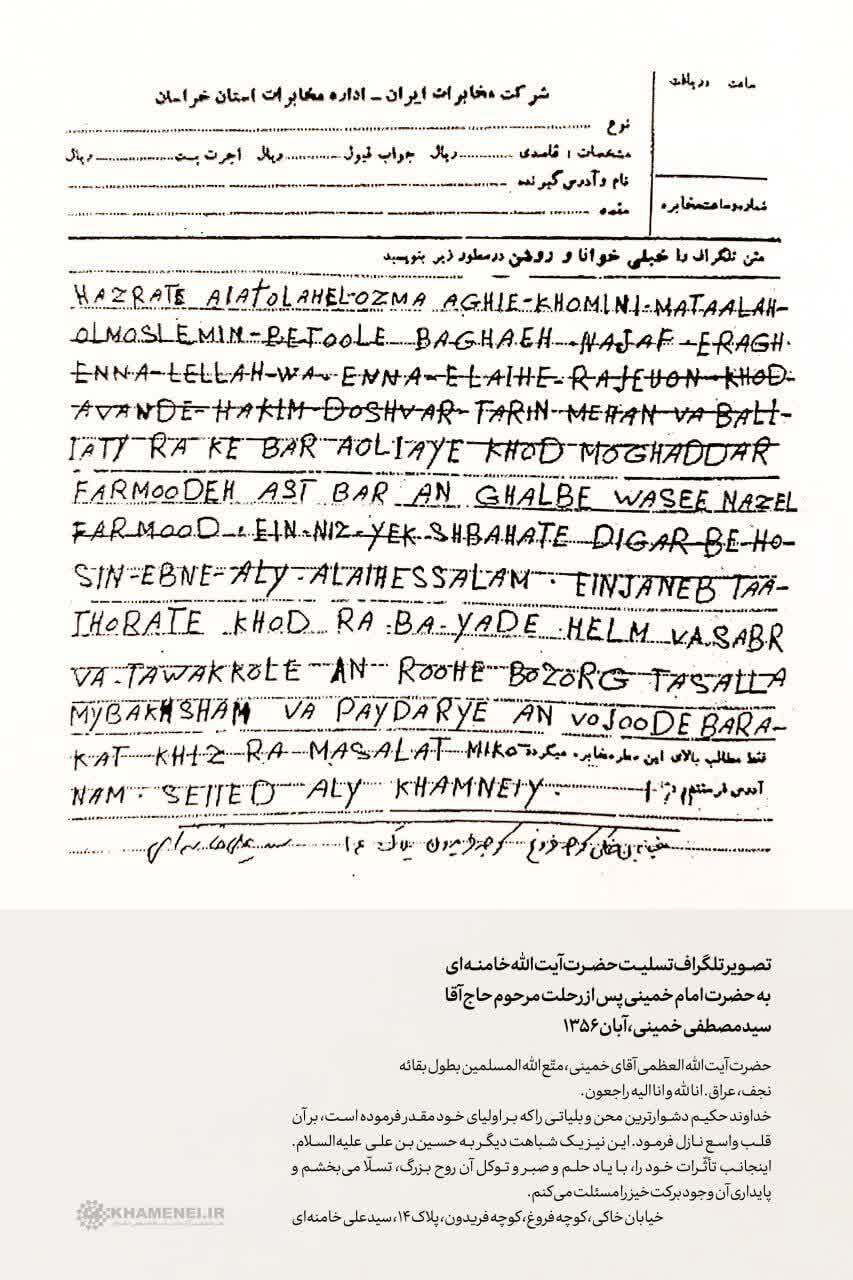 ساعت دریافت
شرکت مخابرات ایران - اداره مخابرات استان خراسان
نوع
مشخصات : قاصدی ........... ریال جواب قبول ........... ریال اجرت پست ........... ریال
نام و آدرس گیرنده
شماره و ساعت مخابره
مقصد
متن تلگراف را خیلی خوانا و روشن در سطور زیر بنویسید
HAZRATE AIATOLAHEL-OZMA AGHIE-KHOMINI-MATAALAH-
OLMOSLEMIN-BETOOLE BAGHAEH-NAJAF-ERAGH.
ENNA-LELLAH-WA-ENNA-ELAIHE-RAJEUON-KHOD-
AVANDE-HAKIM-DOSHVAR-TARIN-MEHAN VA BALI-
IATY RA KE BAR AOLIAYE KHOD MOGHADDAR
FARMOODEH AST BAR AN GHALBE WASEE NAZEL
FARMOOD. EIN-NIZ-YEK-SHBAHATE DIGAR-BE-HO-
SIN-EBNE-ALY-ALAIHESSALAM. EINJANEB TAA-
THORATE KHOD RA BA-YADE HELM VA SABR
VA-TAWAKKOLE AN ROOHE BOZORG TASALLA
MYBAKHSHAM VA PAYDARYE AN VOJOODE BARA-
KAT-KHIZ RA MASALAT MIKO فقط مطالب بالای این سطر مخابره میگردد
NAM. SEIIED ALY KHAMNEIY.
تصویر تلگراف تسلیت حضرت آیت الله خامنه‌ای
به حضرت امام خمینی پس از رحلت مرحوم حاج آقا
سید مصطفی خمینی، آبان ۱۳۵۶
حضرت آیت الله العظمی آقای خمینی، متّع الله المسلمین بطول بقائه
نجف، عراق. انا لله و انا الیه راجعون.
خداوند حکیم دشوارترین محن و بلیاتی را که بر اولیای خود مقدر فرموده است، بر آن
قلب واسع نازل فرمود. این نیز یک شباهت دیگر به حسین بن علی علیه السلام.
اینجانب تأثّرات خود را، با یاد حلم و صبر و توکل آن روح بزرگ، تسلّا می‌بخشم و
پایداری آن وجود برکت خیز را مسئلت می‌کنم.
خیابان خاکی، کوچه فروغ، کوچه فریدون، پلاک ۱۴، سید علی خامنه‌ای
KHAMENEI.IR